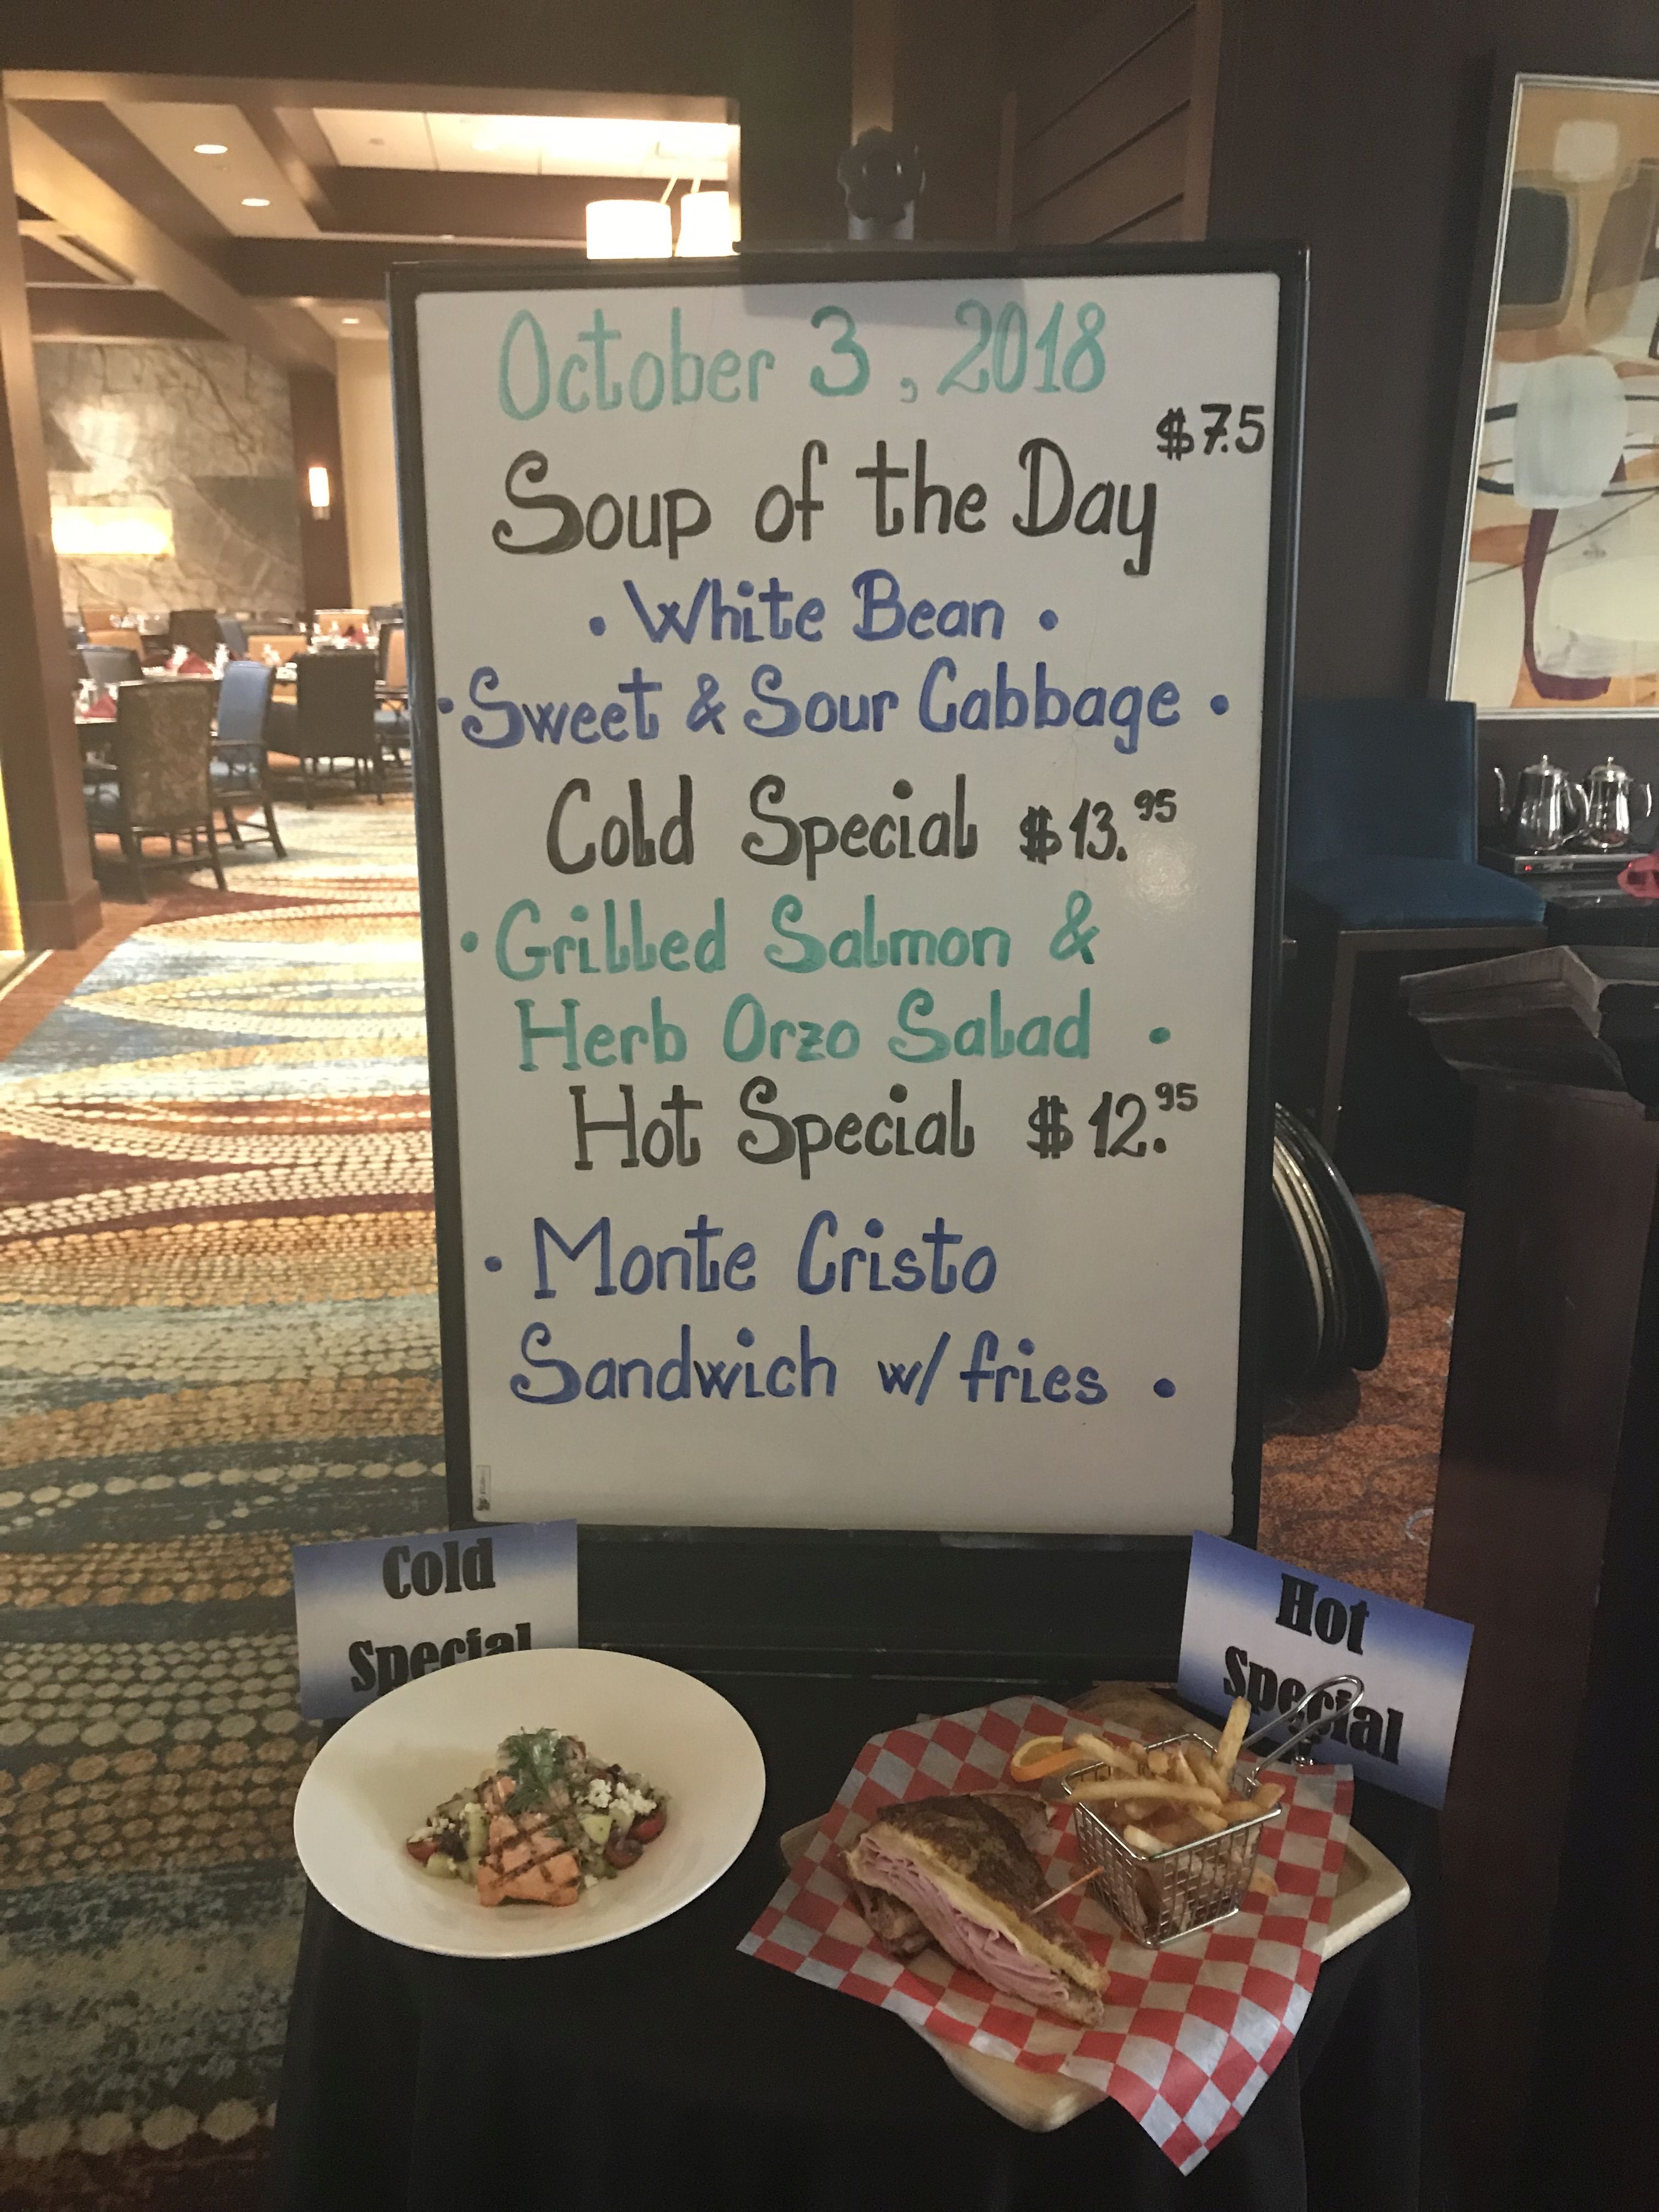 October 3, 2018
$7.5
Soup of the Day
• White Bean •
• Sweet & Sour Cabbage •
Cold Special $13.95
• Grilled Salmon &
Herb Orzo Salad •
Hot Special $12.95
• Monte Cristo
Sandwich w/ fries •
Cold
Special
Hot
Special